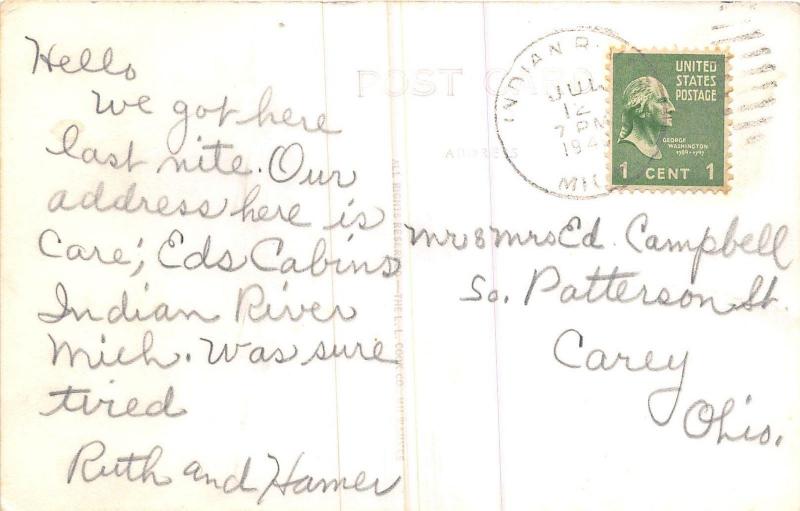 Hello
We got here
last nite. Our
address here is
Care; Eds Cabins
Indian River
Mich. Was sure
tired
Ruth and Hamer
POST CARD
ADDRESS
ALL RIGHTS RESERVED—THE L. L. COOK CO. MILWAUKEE
INDIAN R
JUL
12
7 PM
194
MIC
UNITED
STATES
POSTAGE
GEORGE
WASHINGTON
1789-1797
1 CENT 1
Mr & Mrs Ed. Campbell
So. Patterson St.
Carey
Ohio.